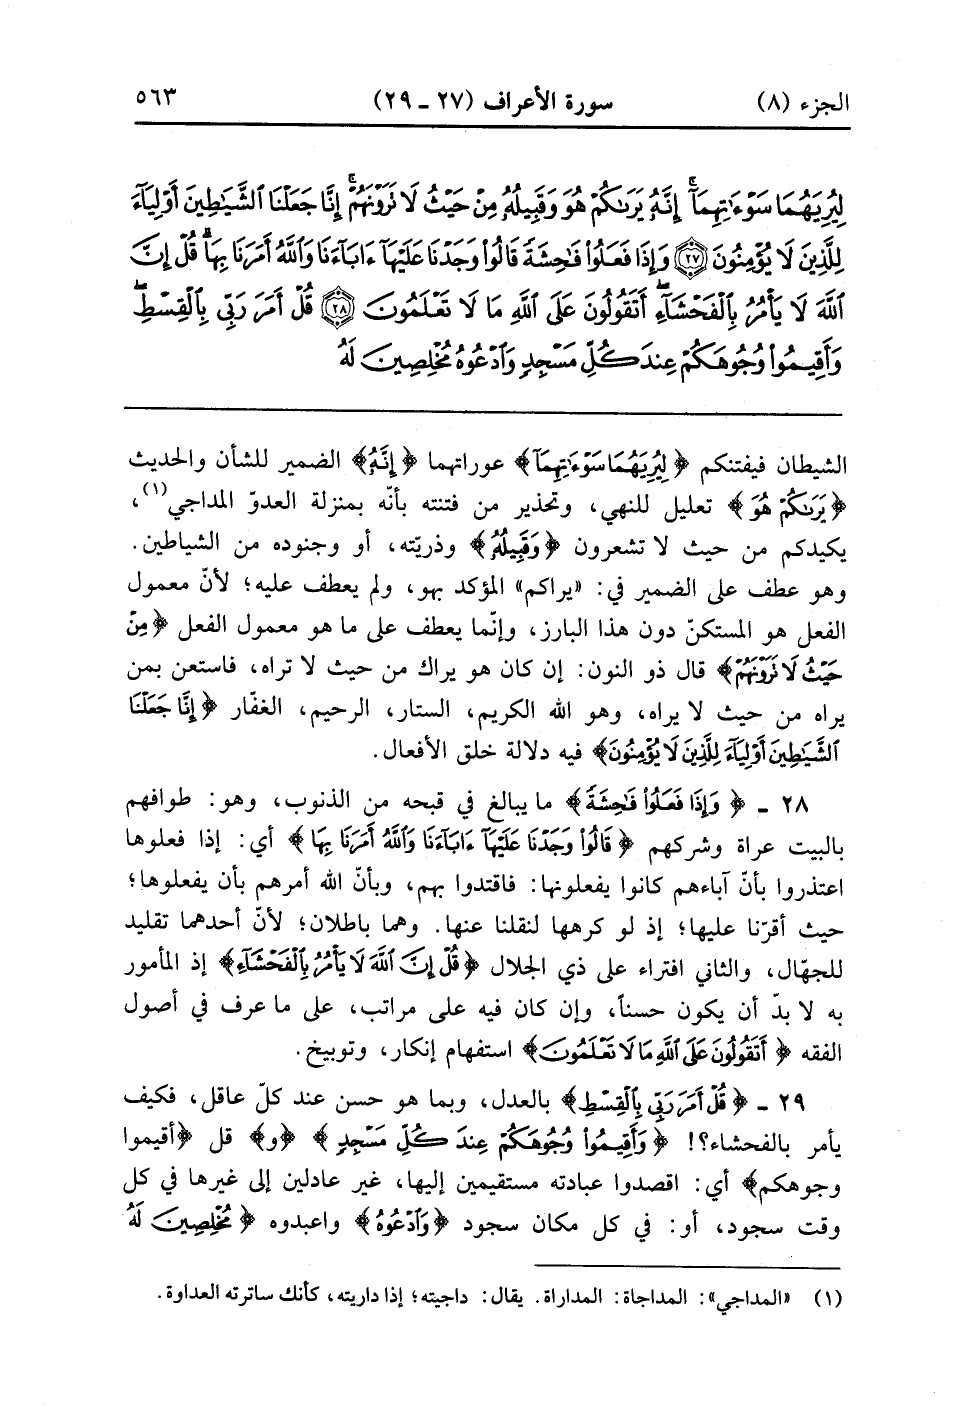 الجزء (٨) سورة الأعراف (٢٧ - ٢٩) ٥٦٣
لِيُرِيَهُمَا سَوْءَٰتِهِمَآ ۗ إِنَّهُۥ يَرَىٰكُمْ هُوَ وَقَبِيلُهُۥ مِنْ حَيْثُ لَا تَرَوْنَهُمْ ۗ إِنَّا جَعَلْنَا ٱلشَّيَـٰطِينَ أَوْلِيَآءَ
لِلَّذِينَ لَا يُؤْمِنُونَ ﴿٢٧﴾ وَإِذَا فَعَلُوا۟ فَـٰحِشَةً قَالُوا۟ وَجَدْنَا عَلَيْهَآ ءَابَآءَنَا وَٱللَّهُ أَمَرَنَا بِهَا ۗ قُلْ إِنَّ
ٱللَّهَ لَا يَأْمُرُ بِٱلْفَحْشَآءِ ۖ أَتَقُولُونَ عَلَى ٱللَّهِ مَا لَا تَعْلَمُونَ ﴿٢٨﴾ قُلْ أَمَرَ رَبِّى بِٱلْقِسْطِ ۖ
وَأَقِيمُوا۟ وُجُوهَكُمْ عِندَ كُلِّ مَسْجِدٍ وَٱدْعُوهُ مُخْلِصِينَ لَهُ
الشيطان فيفتنكم ﴿لِيُرِيَهُمَا سَوْءَٰتِهِمَآ﴾ عوراتهما ﴿إِنَّهُۥ﴾ الضمير للشأن والحديث
﴿يَرَىٰكُمْ هُوَ﴾ تعليل للنهي، وتحذير من فتنته بأنّه بمنزلة العدوّ المداجي(١)،
يكيدكم من حيث لا تشعرون ﴿وَقَبِيلُهُۥ﴾ وذريّته، أو وجنوده من الشياطين.
وهو عطف على الضمير في: «يراكم» المؤكد بهو، ولم يعطف عليه؛ لأنّ معمول
الفعل هو المستكنّ دون هذا البارز، وإنّما يعطف على ما هو معمول الفعل ﴿مِنْ
حَيْثُ لَا تَرَوْنَهُمْ﴾ قال ذو النون: إن كان هو يراك من حيث لا تراه، فاستعن بمن
يراه من حيث لا يراه، وهو الله الكريم، الستار، الرحيم، الغفّار ﴿إِنَّا جَعَلْنَا
ٱلشَّيَـٰطِينَ أَوْلِيَآءَ لِلَّذِينَ لَا يُؤْمِنُونَ﴾ فيه دلالة خلق الأفعال.
٢٨ - ﴿وَإِذَا فَعَلُوا۟ فَـٰحِشَةً﴾ ما يبالغ في قبحه من الذنوب، وهو: طوافهم
بالبيت عراة وشركهم ﴿قَالُوا۟ وَجَدْنَا عَلَيْهَآ ءَابَآءَنَا وَٱللَّهُ أَمَرَنَا بِهَا﴾ أي: إذا فعلوها
اعتذروا بأنّ آباءهم كانوا يفعلونها: فاقتدوا بهم، وبأنّ الله أمرهم بأن يفعلوها؛
حيث أقرّنا عليها؛ إذ لو كرهها لنقلنا عنها. وهما باطلان؛ لأنّ أحدهما تقليد
للجهّال، والثاني افتراء على ذي الجلال ﴿قُلْ إِنَّ ٱللَّهَ لَا يَأْمُرُ بِٱلْفَحْشَآءِ﴾ إذ المأمور
به لا بدّ أن يكون حسناً، وإن كان فيه على مراتب، على ما عرف في أصول
الفقه ﴿أَتَقُولُونَ عَلَى ٱللَّهِ مَا لَا تَعْلَمُونَ﴾ استفهام إنكار، وتوبيخ.
٢٩ - ﴿قُلْ أَمَرَ رَبِّى بِٱلْقِسْطِ﴾ بالعدل، وبما هو حسن عند كلّ عاقل، فكيف
يأمر بالفحشاء؟! ﴿وَأَقِيمُوا۟ وُجُوهَكُمْ عِندَ كُلِّ مَسْجِدٍ﴾ ﴿و﴾ قل ﴿أقيموا
وجوهكم﴾ أي: اقصدوا عبادته مستقيمين إليها، غير عادلين إلى غيرها في كل
وقت سجود، أو: في كل مكان سجود ﴿وَٱدْعُوهُ﴾ واعبدوه ﴿مُخْلِصِينَ لَهُ
(١) «المداجي»: المداجاة: المداراة. يقال: داجيته؛ إذا داريته، كأنك ساترته العداوة.